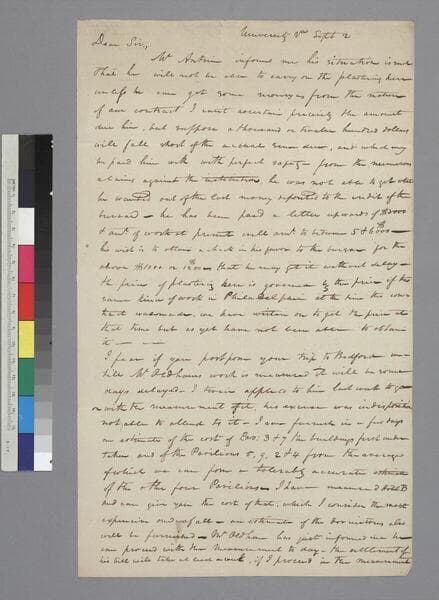 University Va Sept 2
Dear Sir,
Mr Antrim informs me his situation is such
that he will not be able to carry on the plastering here
unless he can get some money, as from the nature
of our contract I cant ascertain precisely the amount
due him, but suppose a thousand or twelve hundred dollars
will fall short of the actual sum due, and which may
be paid him with perfect safety – from the numerous
claims against the institution he was not able to get what
he wanted out of the last money deposited to the credit of the
bursar – he has been paid a little upwards of $3000
& amt of work at present will amt to between 5 & 6000
his wish is to obtain a check in his favor to the bursar for the
above $1000 or 1200 – that he may get it without delay –
the price of plastering here is governed by the price of the
same kind of work in Philadelphia at the time the con=
tract was made, we have written on to get the price at
that time but as yet have not been able to obtain
it –
I fear if you postpone your trip to Bedford un=
till Mr Oldhams work is measured it will be some
days delayed – I twice applied to him last week to go
on with the measurement of it, his excuse was indisposition
not able to attend to it – I can furnish in a few days
an estimate of the cost of Pav: 3 & 7 the buildings first under
taken and of the Pavilions 5, 9, 2 & 4 from the average
of which we can form a tolerably accurate estimate
of the other four Pavilions – I have measured Hotel B
and can give you the cost of that, which I consider the most
expensive one of all – an estimate of the dormitories also
will be furnished – Mr Oldham has just informed me he
can proceed with the measurement to day – the settlement of
his bill will take at least a week, if I proceed in the measurement